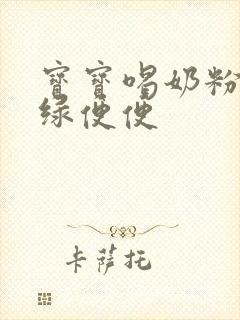 寳寳喝奶粉
绿便便
卡萨托